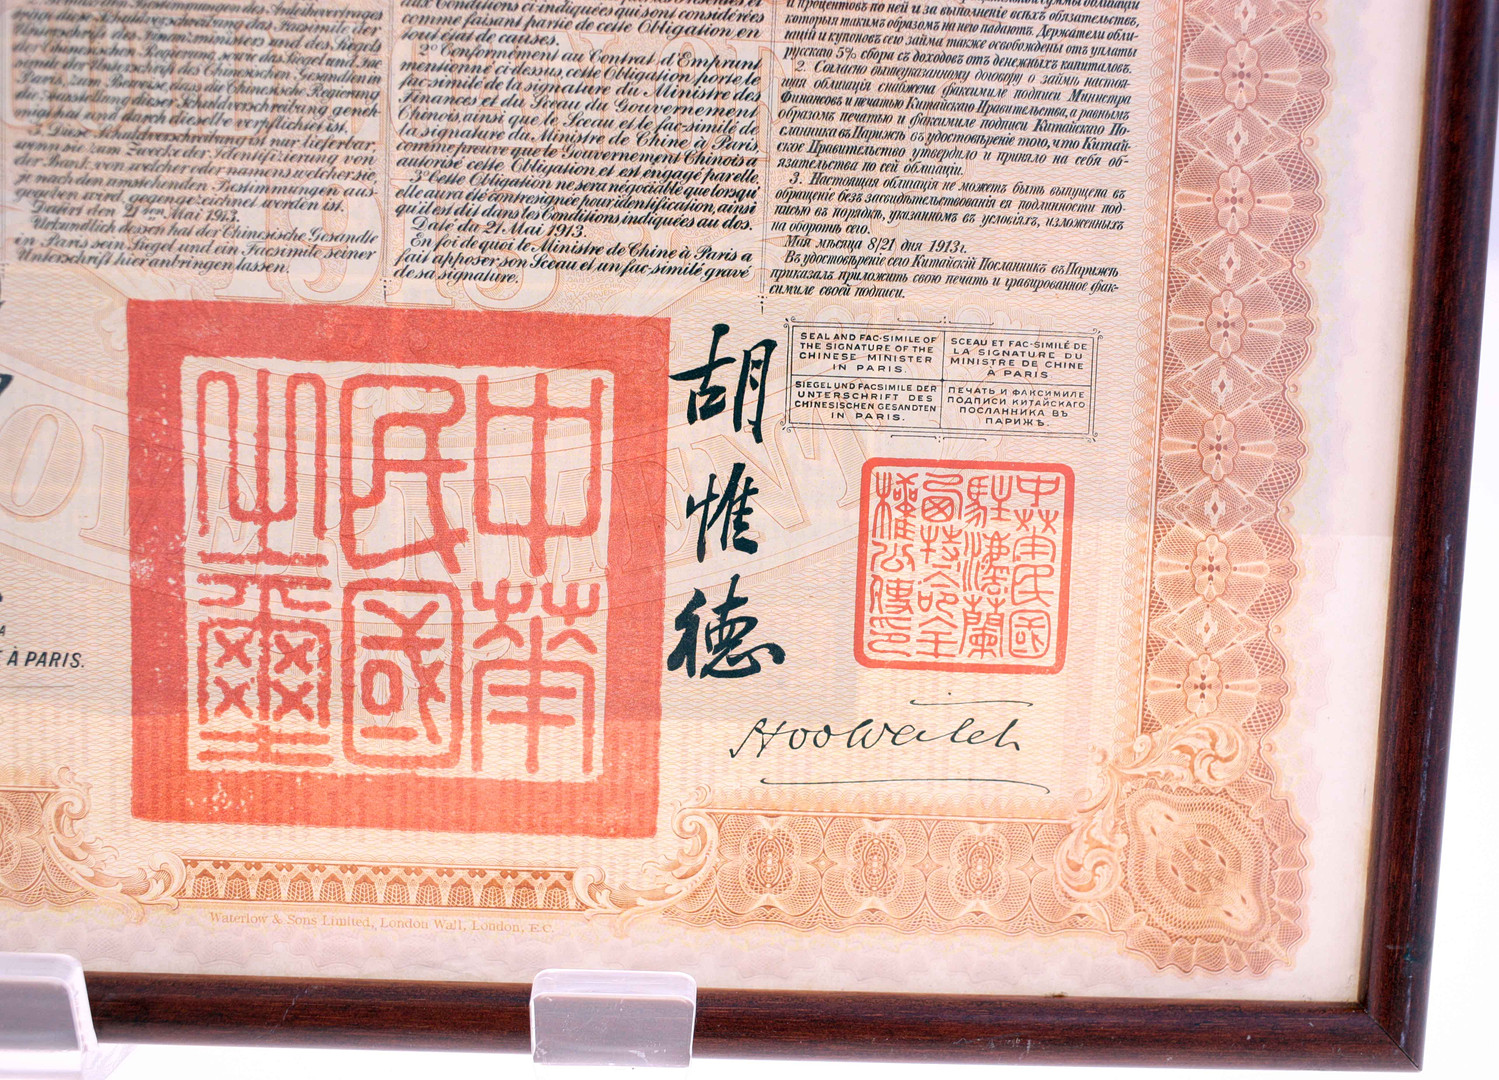 der Chinesischen Regierung, sowie das Siegel und Fac-
simile der Unterschrift des Chinesischen Gesandten in
Paris, zum Beweise, dass die Chinesische Regierung
die Ausstellung dieser Schuldverschreibung geneh-
migt hat und durch dieselbe verpflichtet ist.
3. Diese Schuldverschreibung ist nur lieferbar,
wenn sie zum Zwecke der Identifizierung von
der Bank, von welcher oder namens welcher sie,
je nach den umstehenden Bestimmungen aus-
gegeben wird, gegengezeichnet worden ist.
Datirt den 21ten Mai 1913.
Urkundlich dessen hat der Chinesische Gesandte
in Paris sein Siegel und ein Facsimile seiner
Unterschrift hier anbringen lassen.
aux Conditions ci indiquées qui sont considérées
comme faisant partie de cette Obligation en
tout état de causes.
2º Conformément au Contrat d'Emprunt
mentionné ci-dessus, cette Obligation porte le
fac-similé de la signature du Ministre des
Finances et du Sceau du Gouvernement
Chinois, ainsi que le Sceau et le fac-similé de
la signature du Ministre de Chine à Paris,
comme preuve que le Gouvernement Chinois a
autorisé cette Obligation, et est engagé par elle.
3º Cette Obligation ne sera négociable que lorsqu'
elle aura été contresignée pour identification, ainsi
qu'il est dit dans les Conditions indiquées au dos.
Daté du 21 Mai 1913.
En foi de quoi le Ministre de Chine à Paris a
fait apposer son Sceau et un fac-similé gravé
de sa signature.
и процентовъ по ней и за выполненіе всѣхъ обязательствъ,
которыя такимъ образомъ на него падаютъ. Держатели обли-
гацій и купоновъ сего займа также освобождены отъ уплаты
русскаго 5% сбора съ доходовъ отъ денежныхъ капиталовъ.
2. Согласно вышеуказанному договору о займѣ настоя-
щая облигація снабжена факсимиле подписи Министра
Финансовъ и печатью Китайскаго Правительства, а равнымъ
образомъ печатью и факсимиле подписи Китайскаго По-
сланника въ Парижѣ въ удостовѣреніе того, что Китай-
ское Правительство утвердило и приняло на себя об-
язательства по сей облигаціи.
3. Настоящая облигація не можетъ быть выпущена въ
обращеніе безъ засвидѣтельствованія ея подлинности под-
писью въ порядкѣ, указанномъ въ условіяхъ, изложенныхъ
на оборотѣ сего.
Мая мѣсяца 8/21 дня 1913 г.
Въ удостовѣреніе сего Китайскій Посланникъ въ Парижѣ
приказалъ приложить свою печать и гравированное фак-
симиле своей подписи.
1913
SEAL AND FAC-SIMILE OF
THE SIGNATURE OF THE
CHINESE MINISTER
IN PARIS.
SCEAU ET FAC-SIMILÉ DE
LA SIGNATURE DU
MINISTRE DE CHINE
À PARIS
SIEGEL UND FACSIMILE DER
UNTERSCHRIFT DES
CHINESISCHEN GESANDTEN
IN PARIS.
ПЕЧАТЬ И ФАКСИМИЛЕ
ПОДПИСИ КИТАЙСКАГО
ПОСЛАННИКА ВЪ
ПАРИЖѢ.
胡惟德
中華
民國
之璽
中華民國
駐法蘭
西特命全
權公使印
Hoo Wei Teh
À PARIS.
Waterlow & Sons Limited, London Wall, London, E.C.